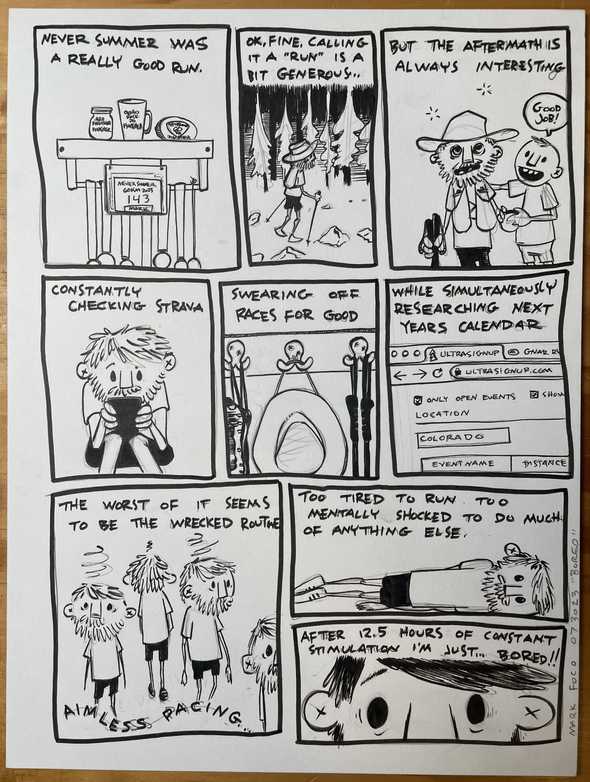 NEVER SUMMER WAS
A REALLY GOOD RUN.
NEVER SUMMER
60KM 2023
143
MARK
OK, FINE, CALLING
IT A "RUN" IS A
BIT GENEROUS..
BUT THE AFTERMATH IS
ALWAYS INTERESTING
GOOD
JOB!
CONSTANTLY
CHECKING STRAVA
SWEARING OFF
RACES FOR GOOD
WHILE SIMULTANEOUSLY
RESEARCHING NEXT
YEARS CALENDAR
ULTRASIGNUP
GNAR RU
ULTRASIGNUP.COM
ONLY OPEN EVENTS
SHOW
LOCATION
COLORADO
EVENT NAME
DISTANCE
THE WORST OF IT SEEMS
TO BE THE WRECKED ROUTINE
AIMLESS PACING...
TOO TIRED TO RUN. TOO
MENTALLY SHOCKED TO DO MUCH
OF ANYTHING ELSE.
AFTER 12.5 HOURS OF CONSTANT
STIMULATION I'M JUST... BORED!!
MARK FOCO 073023 "BORED"